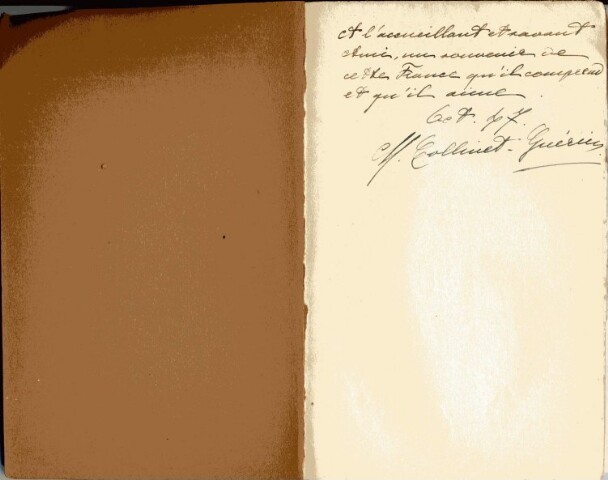 et l'accueillant et savant
Ami, un souvenir de
cette France qu'il comprend
et qu'il aime.
Oct. 47.
M. Collinet-Guérin